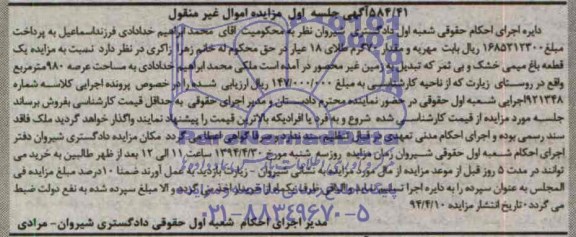 ۵۸۴/۴۱ آگهی جلسه اول مزایده اموال غیر منقول
دایره اجرای احکام حقوقی شعبه اول دادگستری شیروان نظر به محکومیت آقای محمد ابراهیم خدادادی فرزند اسماعیل به پرداخت
مبلغ ۱۶۸۵۳۱۲۳۰۰ ریال بابت مهریه و مقدار ۷۰ گرم طلای ۱۸ عیار در حق محکوم له خانم زهرا زاکری در نظر دارد نسبت به مزایده یک
قطعه باغ میمی خشک و بی ثمر که تبدیل به زمین غیر محصور در آمده است ملکی محمد ابراهیم خدادادی به مساحت عرصه ۹۸۰ مترمربع
واقع در روستای زیارت که از ناحیه کارشناسی به مبلغ ۱۴۷/۰۰۰/۰۰۰ ریال ارزیابی شده را در خصوص پرونده اجرایی کلاسه شماره
۹۲۱۳۴۸ اجرایی شعبه اول حقوقی در حضور نماینده محترم دادستان و مدیر اجرای حقوقی به حداقل قیمت کارشناسی بفروش برساند
جلسه مورد مزایده از قیمت کارشناسی شده شروع و به فرد یا افرادیکه بالاترین قیمت را پیشنهاد نمایند واگذار خواهد گردید ملک فاقد
سند رسمی بوده و اجرای احکام مدنی تعهدی در قبال تنظیم سند ندارد و صرفا گواهی اعطا می گردد مکان مزایده دادگستری شیروان دفتر
اجرای احکام شعبه اول حقوقی شیروان زمان مزایده روز سه شنبه مورخ ۱۳۹۴/۴/۳۰ ساعت ۱۱ الی ۱۲ بعد از ظهر طالبین به خرید می
توانند در مدت ۵ روز قبل از موعد مزایده از مال مورد مزایده به نشانی شیروان - زیارت بازدید به عمل آورند ضمنا ۱۰ درصد مبلغ مزایده فی
المجلس به عنوان سپرده را به دایره اجرا تسلیم نماید و الباقی ظرف یکماه از خریدار اخذ می گردد و الا مبلغ سپرده شده به نفع دولت ضبط
می گردد. تاریخ انتشار مزایده ۹۴/۴/۱۰
۰۲۱-۸۸۳۴۹۶۷۰-۵
مدیر اجرای احکام شعبه اول حقوقی دادگستری شیروان- مرادی